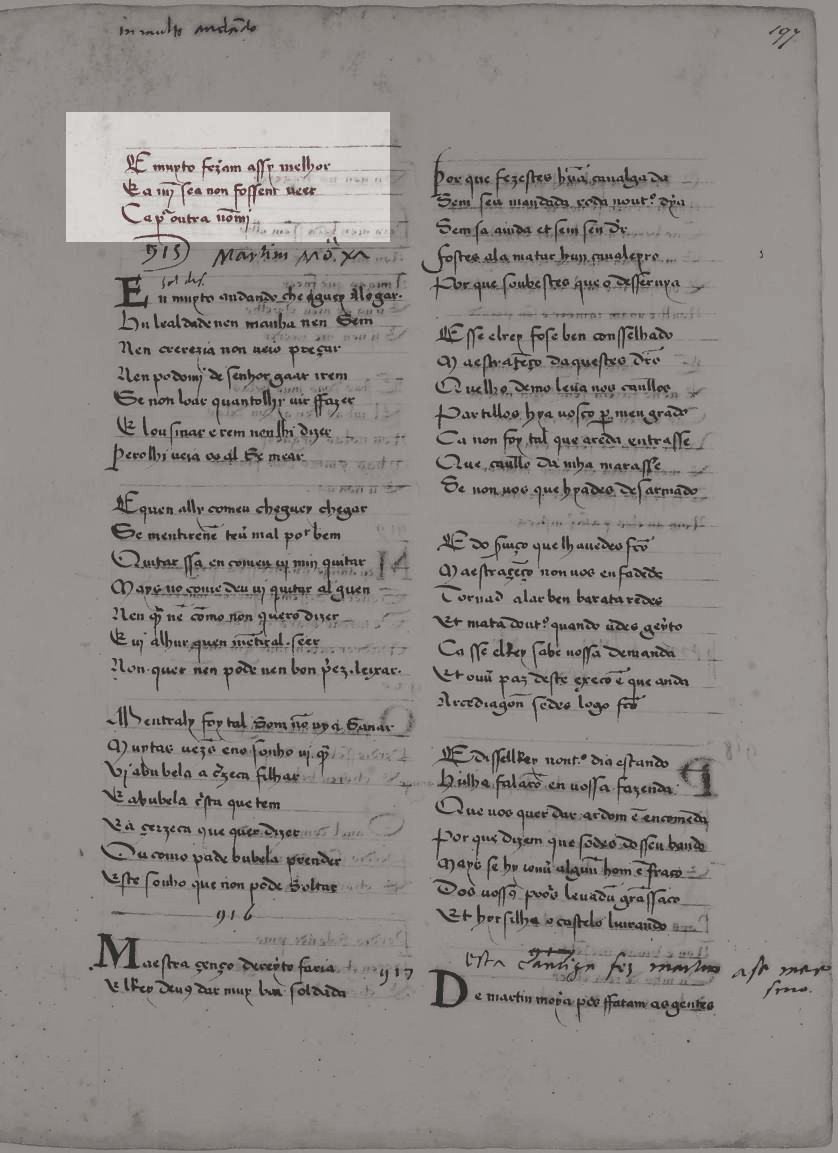 in muyto andãdo
197
E muyto fezam assy melhor
Ca mj̃ sea non fossem veer
Ca p outra nom̃
915 Martim Moxa
E n muyto andando cheguey a logar
Hu lealdade nen manha nen Sem
Nen crerezia non veio preçar
Nen podomj̃ de senhor gaar irem
Se non loar quantolhj vir ffazer
E lousinar e rem nonlhi dizer
Perolhi veia o al Semear
E quen alhj comeu cheguey chegar
Se mentirene teũ mal por bem
Quitar ssa en comeu uj min quitar
Mays no come deu uj quitar alguen
Nen q̃r nẽ cõmo non quero dizer
E uj alhur quen mentral seer
Non quer nen pode nen bon p̃ez leixar
Mentraly foy tal Som nõ vy a Sanar
Muytas uezes eno sonho uj q̃
Vj abubela a cerzeca filhar
E abubela esta que tem
E a çerzeca que quer dizer
Ou como pade bubela prender
Este sonho que non pode Soltar
916
M aestra çenço dereyto faria
Elrey deuos dar muy bõa soldada
917
Por que fezestes hũa caualgada
Sem seu mandada noutro dya
Sem sa aiuda et sem seu
fostes ala matar hun caualeyro
Por que soubestes que o desseruya
E sse elrey fose ben consselhado
Maestraçeço daquestes drõs
Que lho demo leua nos caullos
Partillos hya uosco per meu grado
Ca non foy tal que areda entrasse
Que cauallo da mha matasse
Se non uos que hyades desarmado
E do que lh auedes fcõ
Maestraçeço non uos enfadedes
Tornad alar ben baratarẽdes
Et mata dout quando uĩdes geyto
Ca sse elRey sabe uossa demanda
Et ouũ paz deste execo ẽ que anda
Arcediagõn sedes logo fcõ
E dissellRey nont dia estando
Hu lha falarõ en uossa fazenda
Que uos quer dar ardom ẽ encomẽda
Por que dizem que sodes do sseu bando
Mays se hy ouuer alguũ hom ẽ fraco
Dos uossos poos leuadũ grã ssaco
Et hyrsilha o castelo liurando
esta cantiga fez martim
D e martin moya posffatam as gentes